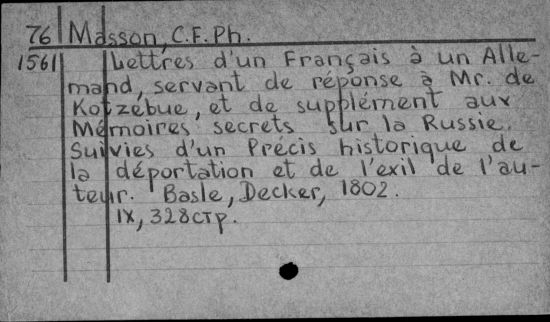 76 Masson, C.F.Ph.
1561 Lettres d'un Français à un Alle-
mand, servant de réponse à Mr. de
Kotzebue, et de supplément aux
Mémoires secrets sur la Russie.
Suivies d'un Précis historique de
la déportation et de l'exil de l'au-
teur. Basle, Decker, 1802.
IX, 328 стр.